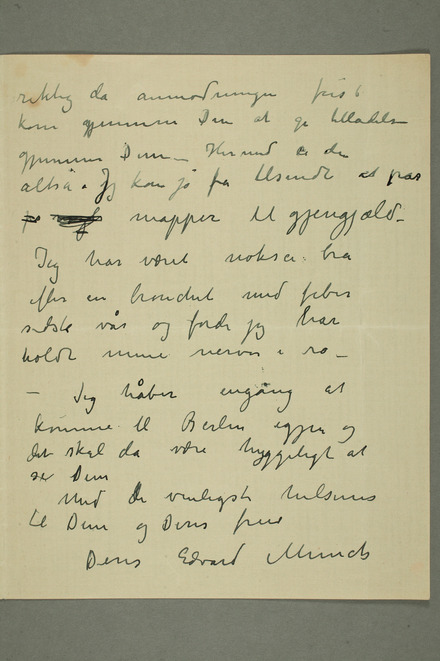 riktig da anmodningen først
kom gjennem Dem at gi tilladelse
gjennem Dem – Hermed er den
altså. Jeg kan jo få tilsendt et par
mapper til gjengjæld –
Jeg har været nokså bra
efter en bronchit med feber
sidste vår og fordi jeg har
holdt mine nerver i ro –
– Jeg håber engang at
komme til Berlin igjen og
det skal da være hyggeligt at
se Dem
Med de venligste hilsener
til Dem og Deres frue
Deres Edvard Munch